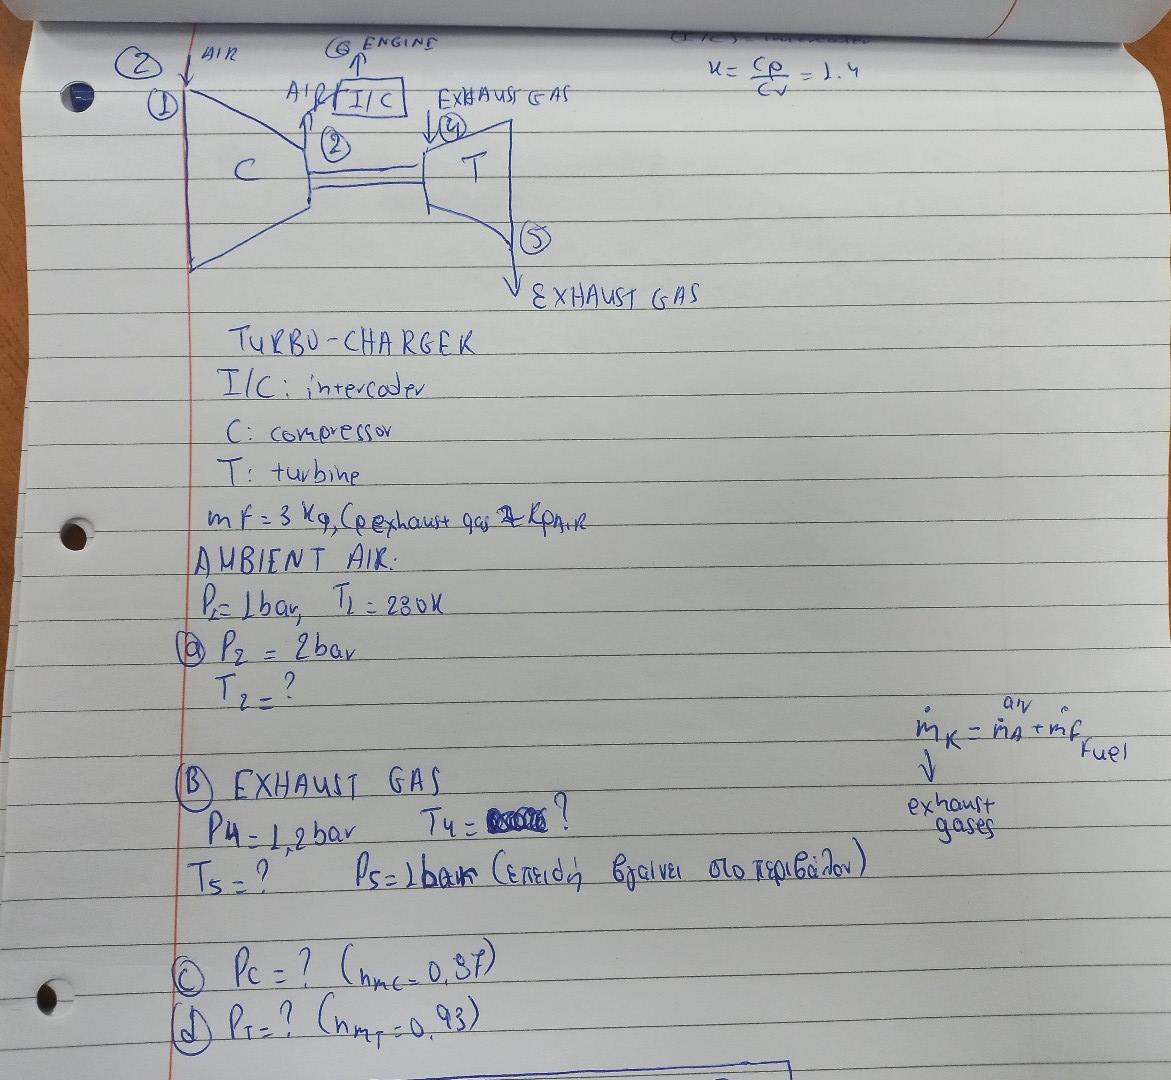 ② AIR
⑥ ENGINE
κ = Cp/Cv = 1.4
① AIR I/C EXHAUST GAS
② ④
C T
⑤
EXHAUST GAS
TURBO-CHARGER
I/C: intercooler
C: compressor
T: turbine
mf = 3 kg, Cp exhaust gas
AMBIENT AIR:
P1 = 1bar, T1 = 290K
ⓐ P2 = 2bar
T2 = ?
ṁK = ṁA + ṁf
air
Fuel
exhaust
gases
Ⓑ EXHAUST GAS
P4 = 1,2bar T4 = ?
T5 = ? P5 = 1bar (επειδή βγαίνει στο περιβάλον)
ⓒ Pc = ? (nmc = 0,97)
ⓓ PT = ? (nmT = 0,93)